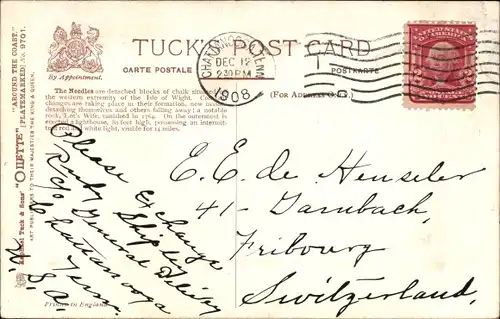 TUCK'S POST CARD
CARTE POSTALE
POSTKARTE
By Appointment.
(FOR ADDRESS ONLY.)
CHATTANOOGA, TENN.
DEC 12
2:30 PM
1908
UNITED STATES
OF AMERICA
The Needles are detached blocks of chalk situated at
the western extremity of the Isle of Wight. Constant
changes are taking place in their formation, new needles
detaching themselves and others falling away; a notable
rock, Lot's Wife, vanished in 1764. On the outermost is
erected a lighthouse, 80 feet high, possessing an intermit-
tent red and white light, visible for 14 miles.
Raphael Tuck & Sons' "OILETTE" "AROUND THE COAST."
[PLATEMARKED] No. 9701.
ART PUBLISHERS TO THEIR MAJESTIES THE KING & QUEEN.
Please exchange
Ruby Shipley
c/o General Delivery
Chattanooga
Tenn.
U.S.a.
E. E. de Henseler
41- Jambach,
Fribourg
Switzerland,
Printed in England